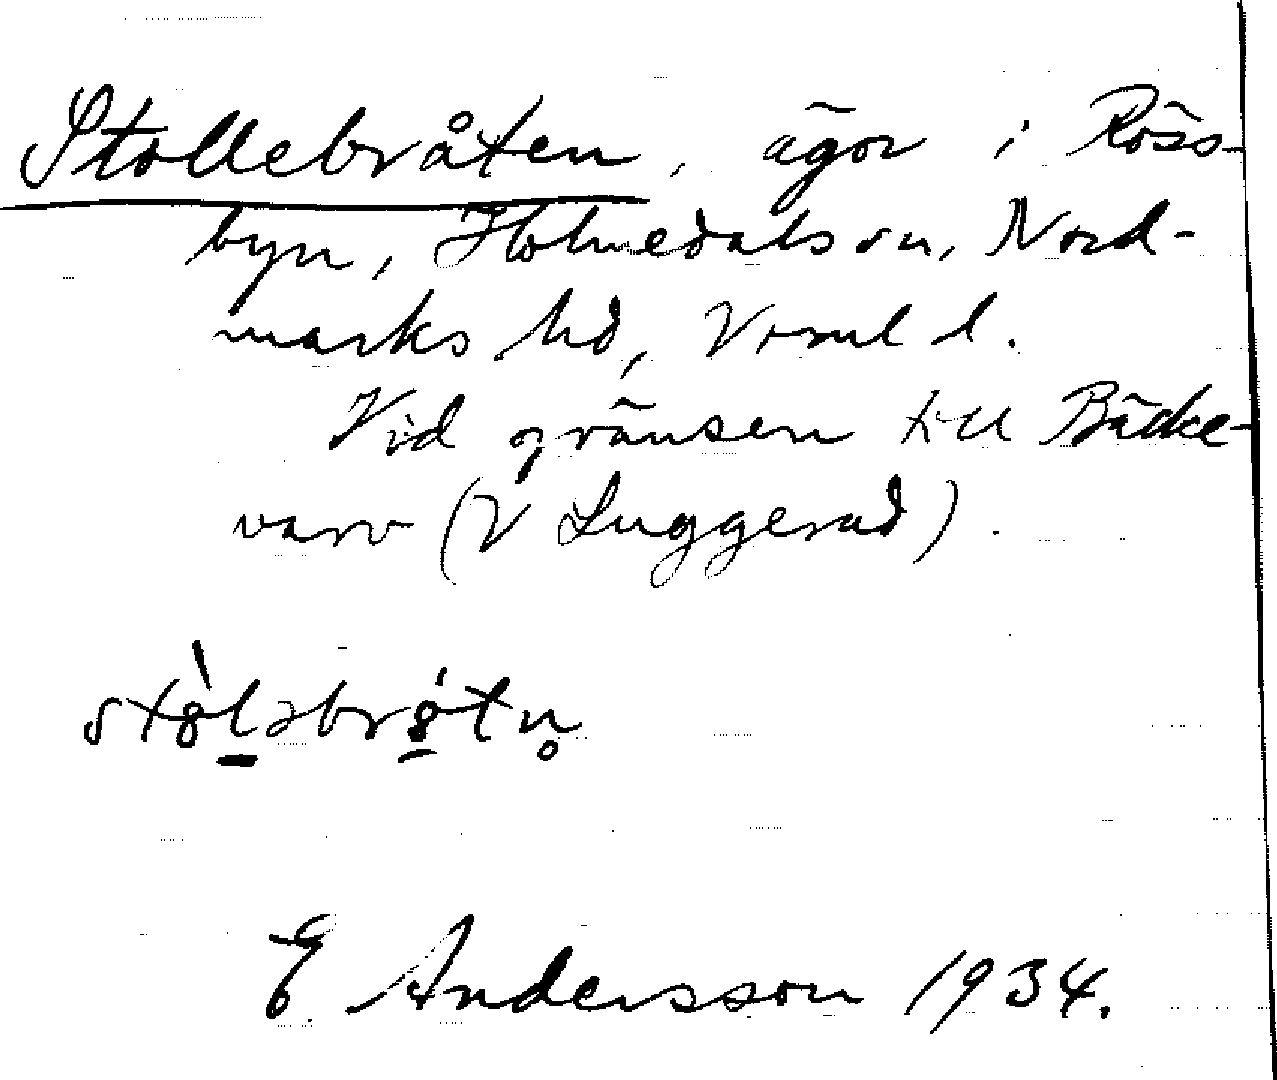 Stollebråten, ägor i Röss-
byn, Holmedals sn, Nord-
marks hd, Vrml l.
Vid gränsen till Bäcke-
varv (V Luggerud).
E Andersson 1934.